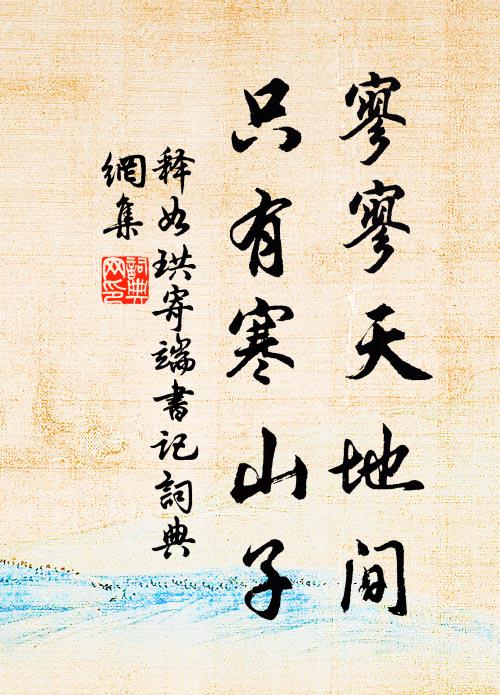 寥寥天地间
只有寒山子
释如珙寄端书记詞典
網集
詞典
网印